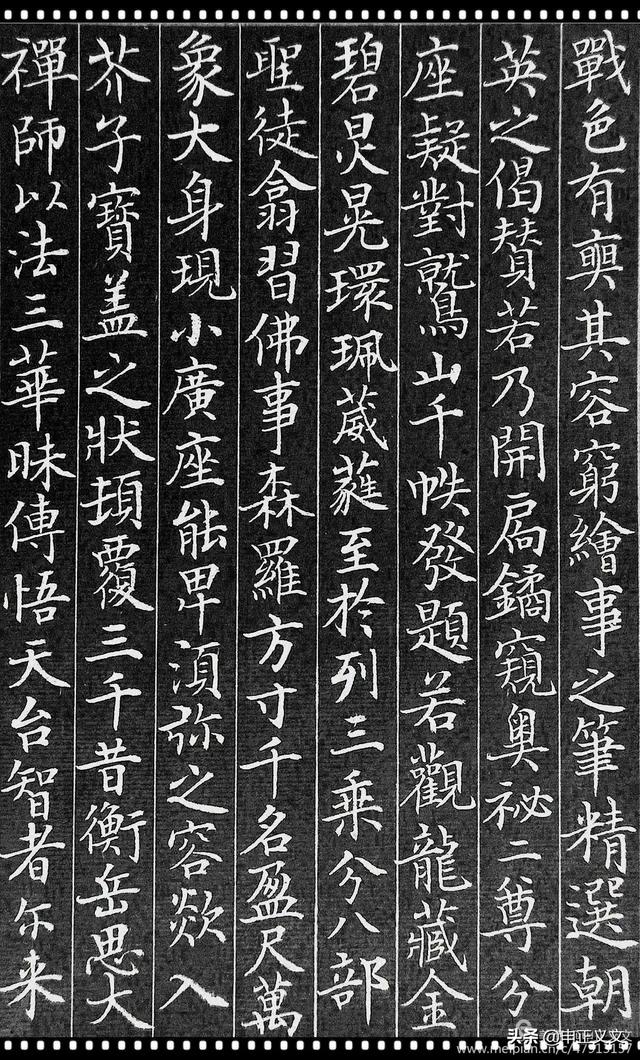 戰色有奭其容窮繪事之筆精選朝
英之偈賛若乃開扃鐍窺奥祕二尊分
座疑對鷲山千帙發題若觀龍藏金
碧炅晃環珮葳蕤至於列三乘分八部
聖徒翕習佛事森羅方寸千名盈尺萬
象大身現小廣座能卑湏弥之容欻入
芥子寶盖之狀頓覆三千昔衡岳思大
禪師以法三華昧傳悟天台智者尓来
头条 @申正义文